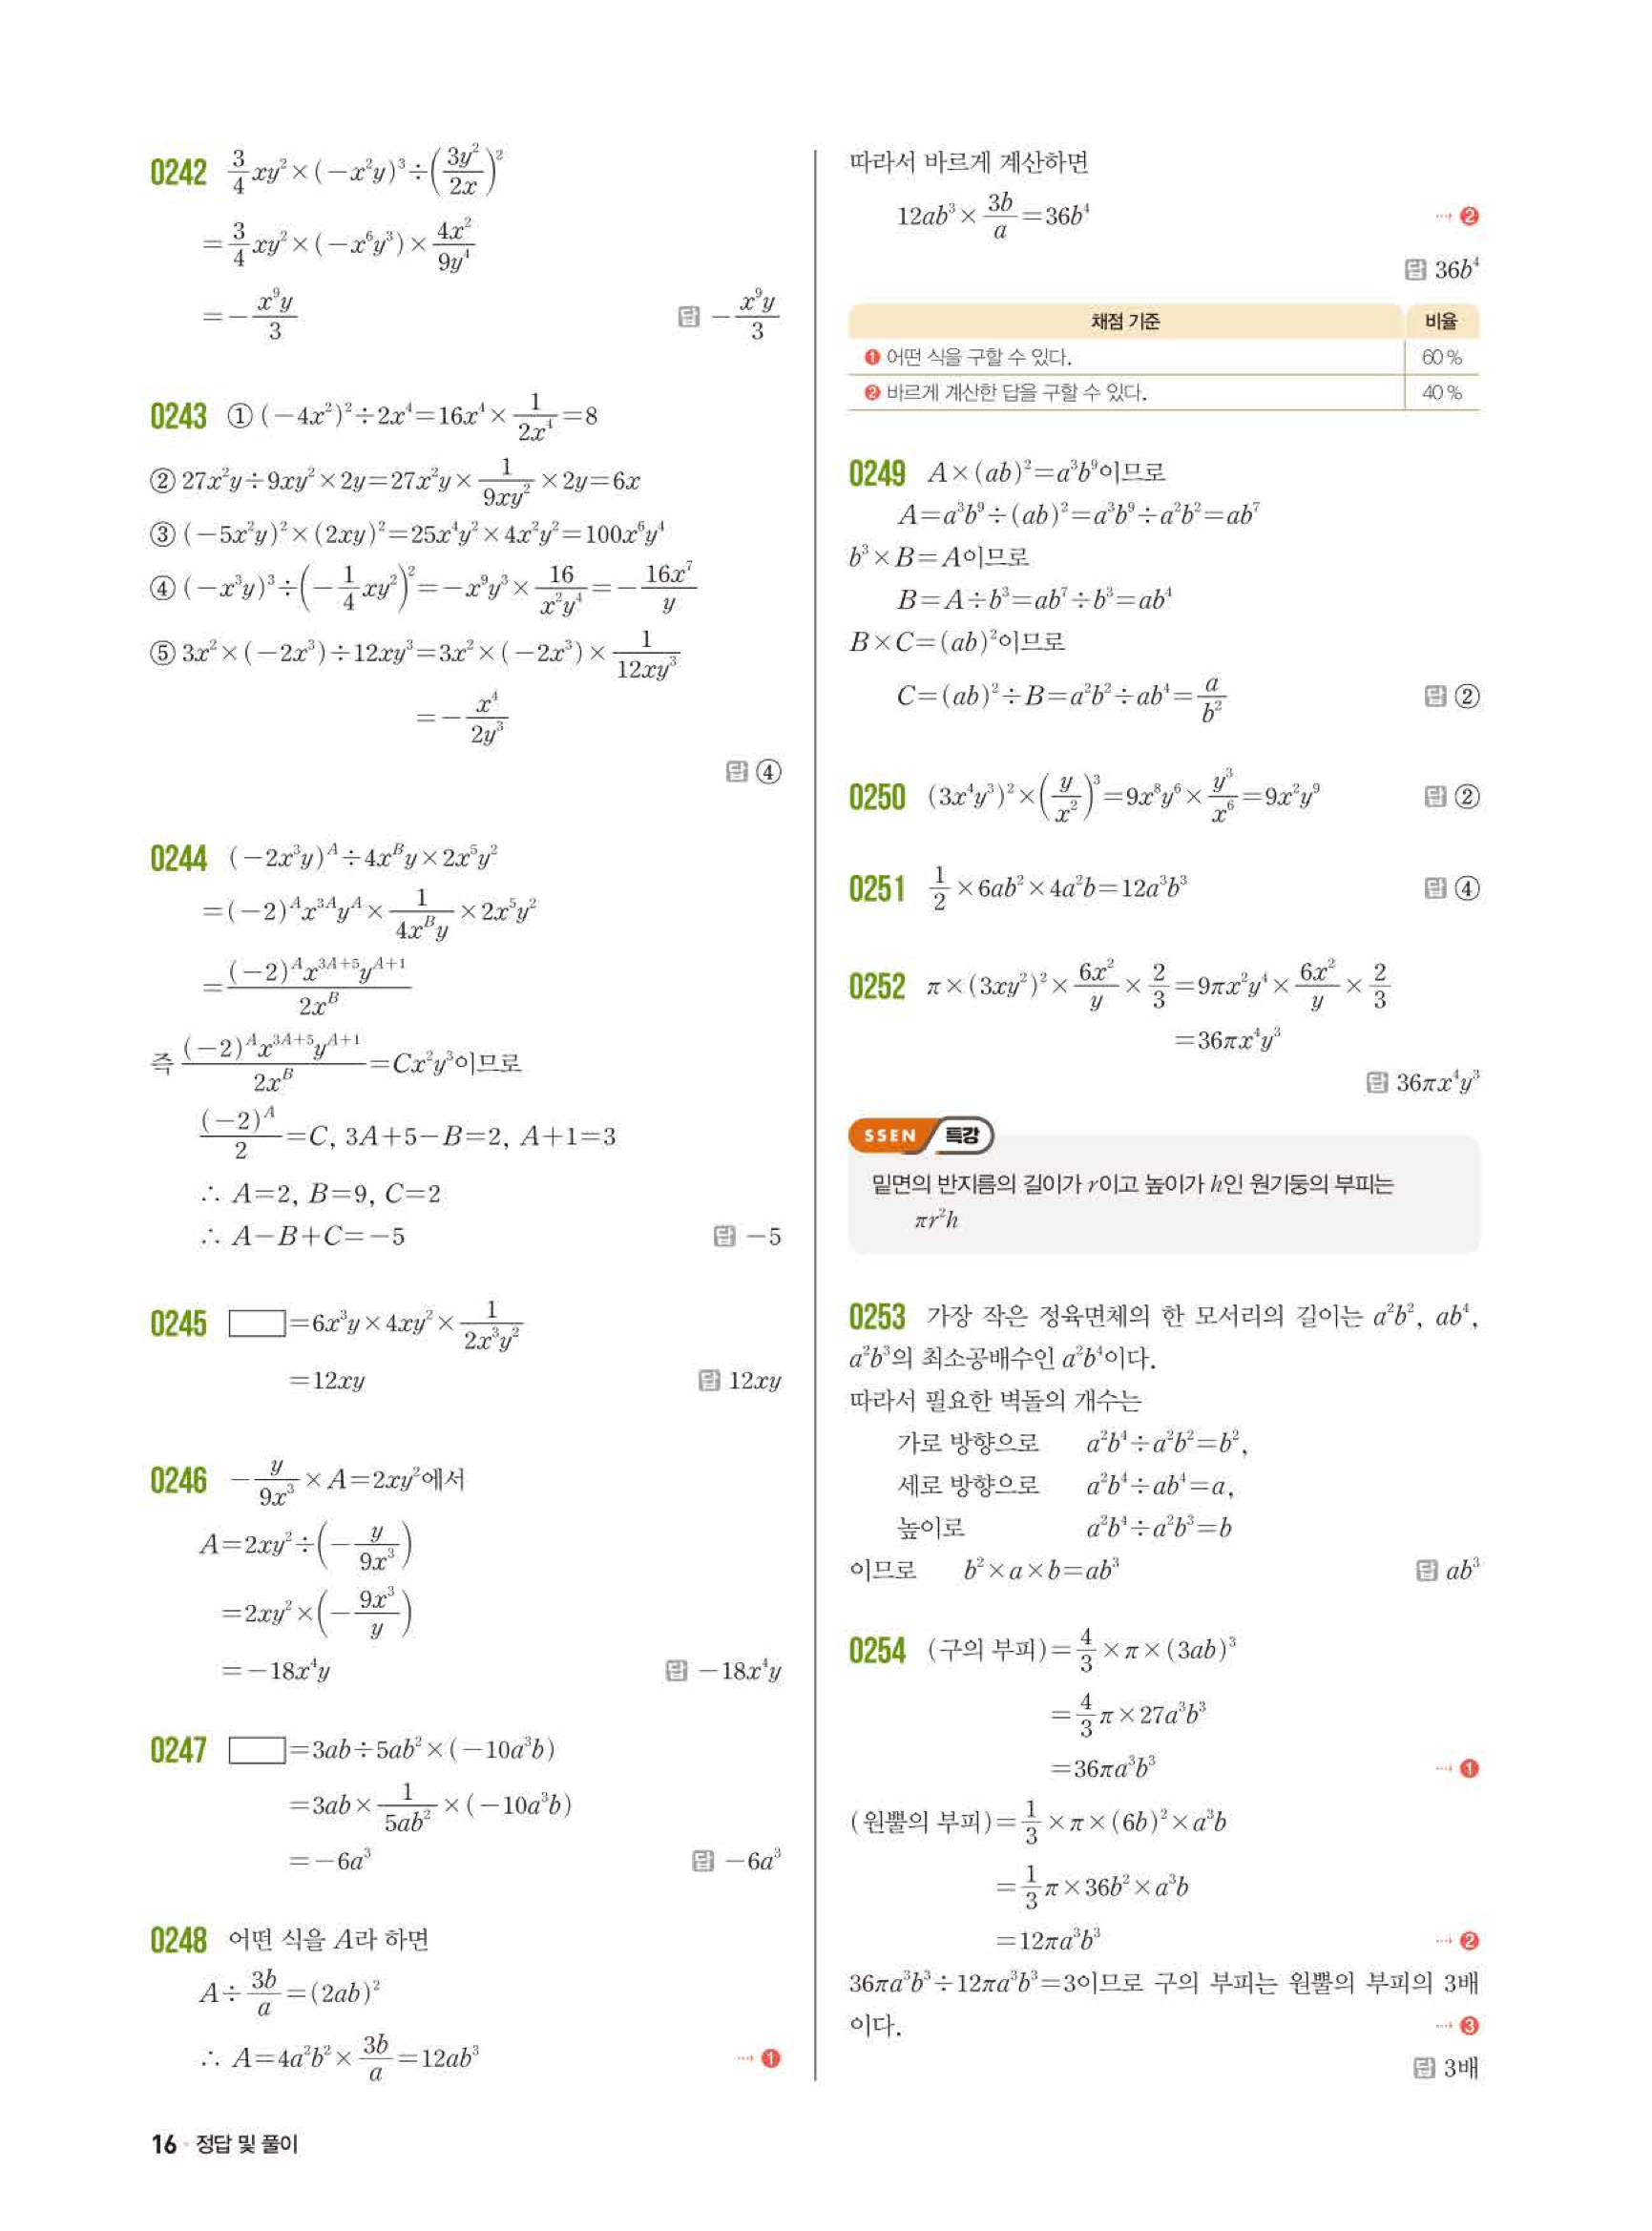 0242 $\frac{3}{4}xy^2\times(-x^2y)^3\div\left(\frac{3y^2}{2x}\right)^2$
$=\frac{3}{4}xy^2\times(-x^6y^3)\times\frac{4x^2}{9y^4}$
$=-\frac{x^9y}{3}$ 답 $-\frac{x^9y}{3}$
0243 ① $(-4x^2)^2\div2x^4=16x^4\times\frac{1}{2x^4}=8$
② $27x^2y\div9xy^2\times2y=27x^2y\times\frac{1}{9xy^2}\times2y=6x$
③ $(-5x^2y)^2\times(2xy)^2=25x^4y^2\times4x^2y^2=100x^6y^4$
④ $(-x^3y)^3\div\left(-\frac{1}{4}xy^2\right)^2=-x^9y^3\times\frac{16}{x^2y^4}=-\frac{16x^7}{y}$
⑤ $3x^2\times(-2x^3)\div12xy^3=3x^2\times(-2x^3)\times\frac{1}{12xy^3}$
$=-\frac{x^4}{2y^3}$
답 ④
0244 $(-2x^3y)^A\div4x^By\times2x^5y^2$
$=(-2)^Ax^{3A}y^A\times\frac{1}{4x^By}\times2x^5y^2$
$=\frac{(-2)^Ax^{3A+5}y^{A+1}}{2x^B}$
즉 $\frac{(-2)^Ax^{3A+5}y^{A+1}}{2x^B}=Cx^2y^3$이므로
$\frac{(-2)^A}{2}=C, 3A+5-B=2, A+1=3$
∴ $A=2, B=9, C=2$
∴ $A-B+C=-5$ 답 $-5$
0245 □$=6x^3y\times4xy^2\times\frac{1}{2x^3y^2}$
$=12xy$ 답 $12xy$
0246 $-\frac{y}{9x^3}\times A=2xy^2$에서
$A=2xy^2\div\left(-\frac{y}{9x^3}\right)$
$=2xy^2\times\left(-\frac{9x^3}{y}\right)$
$=-18x^4y$ 답 $-18x^4y$
0247 □$=3ab\div5ab^2\times(-10a^3b)$
$=3ab\times\frac{1}{5ab^2}\times(-10a^3b)$
$=-6a^3$ 답 $-6a^3$
0248 어떤 식을 $A$라 하면
$A\div\frac{3b}{a}=(2ab)^2$
∴ $A=4a^2b^2\times\frac{3b}{a}=12ab^3$ ⋯→ ❶
따라서 바르게 계산하면
$12ab^3\times\frac{3b}{a}=36b^4$ ⋯→ ❷
답 $36b^4$
채점 기준 비율
❶ 어떤 식을 구할 수 있다. 60 %
❷ 바르게 계산한 답을 구할 수 있다. 40 %
0249 $A\times(ab)^2=a^3b^9$이므로
$A=a^3b^9\div(ab)^2=a^3b^9\div a^2b^2=ab^7$
$b^3\times B=A$이므로
$B=A\div b^3=ab^7\div b^3=ab^4$
$B\times C=(ab)^2$이므로
$C=(ab)^2\div B=a^2b^2\div ab^4=\frac{a}{b^2}$ 답 ②
0250 $(3x^4y^3)^2\times\left(\frac{y}{x^2}\right)^3=9x^8y^6\times\frac{y^3}{x^6}=9x^2y^9$ 답 ②
0251 $\frac{1}{2}\times6ab^2\times4a^2b=12a^3b^3$ 답 ④
0252 $\pi\times(3xy^2)^2\times\frac{6x^2}{y}\times\frac{2}{3}=9\pi x^2y^4\times\frac{6x^2}{y}\times\frac{2}{3}$
$=36\pi x^4y^3$
답 $36\pi x^4y^3$
SSEN 특강
밑면의 반지름의 길이가 $r$이고 높이가 $h$인 원기둥의 부피는
$\pi r^2h$
0253 가장 작은 정육면체의 한 모서리의 길이는 $a^2b^2$, $ab^4$,
$a^2b^3$의 최소공배수인 $a^2b^4$이다.
따라서 필요한 벽돌의 개수는
가로 방향으로 $a^2b^4\div a^2b^2=b^2$,
세로 방향으로 $a^2b^4\div ab^4=a$,
높이로 $a^2b^4\div a^2b^3=b$
이므로 $b^2\times a\times b=ab^3$ 답 $ab^3$
0254 (구의 부피)$=\frac{4}{3}\times\pi\times(3ab)^3$
$=\frac{4}{3}\pi\times27a^3b^3$
$=36\pi a^3b^3$ ⋯→ ❶
(원뿔의 부피)$=\frac{1}{3}\times\pi\times(6b)^2\times a^3b$
$=\frac{1}{3}\pi\times36b^2\times a^3b$
$=12\pi a^3b^3$ ⋯→ ❷
$36\pi a^3b^3\div12\pi a^3b^3=3$이므로 구의 부피는 원뿔의 부피의 3배
이다. ⋯→ ❸
답 3배
16 · 정답 및 풀이